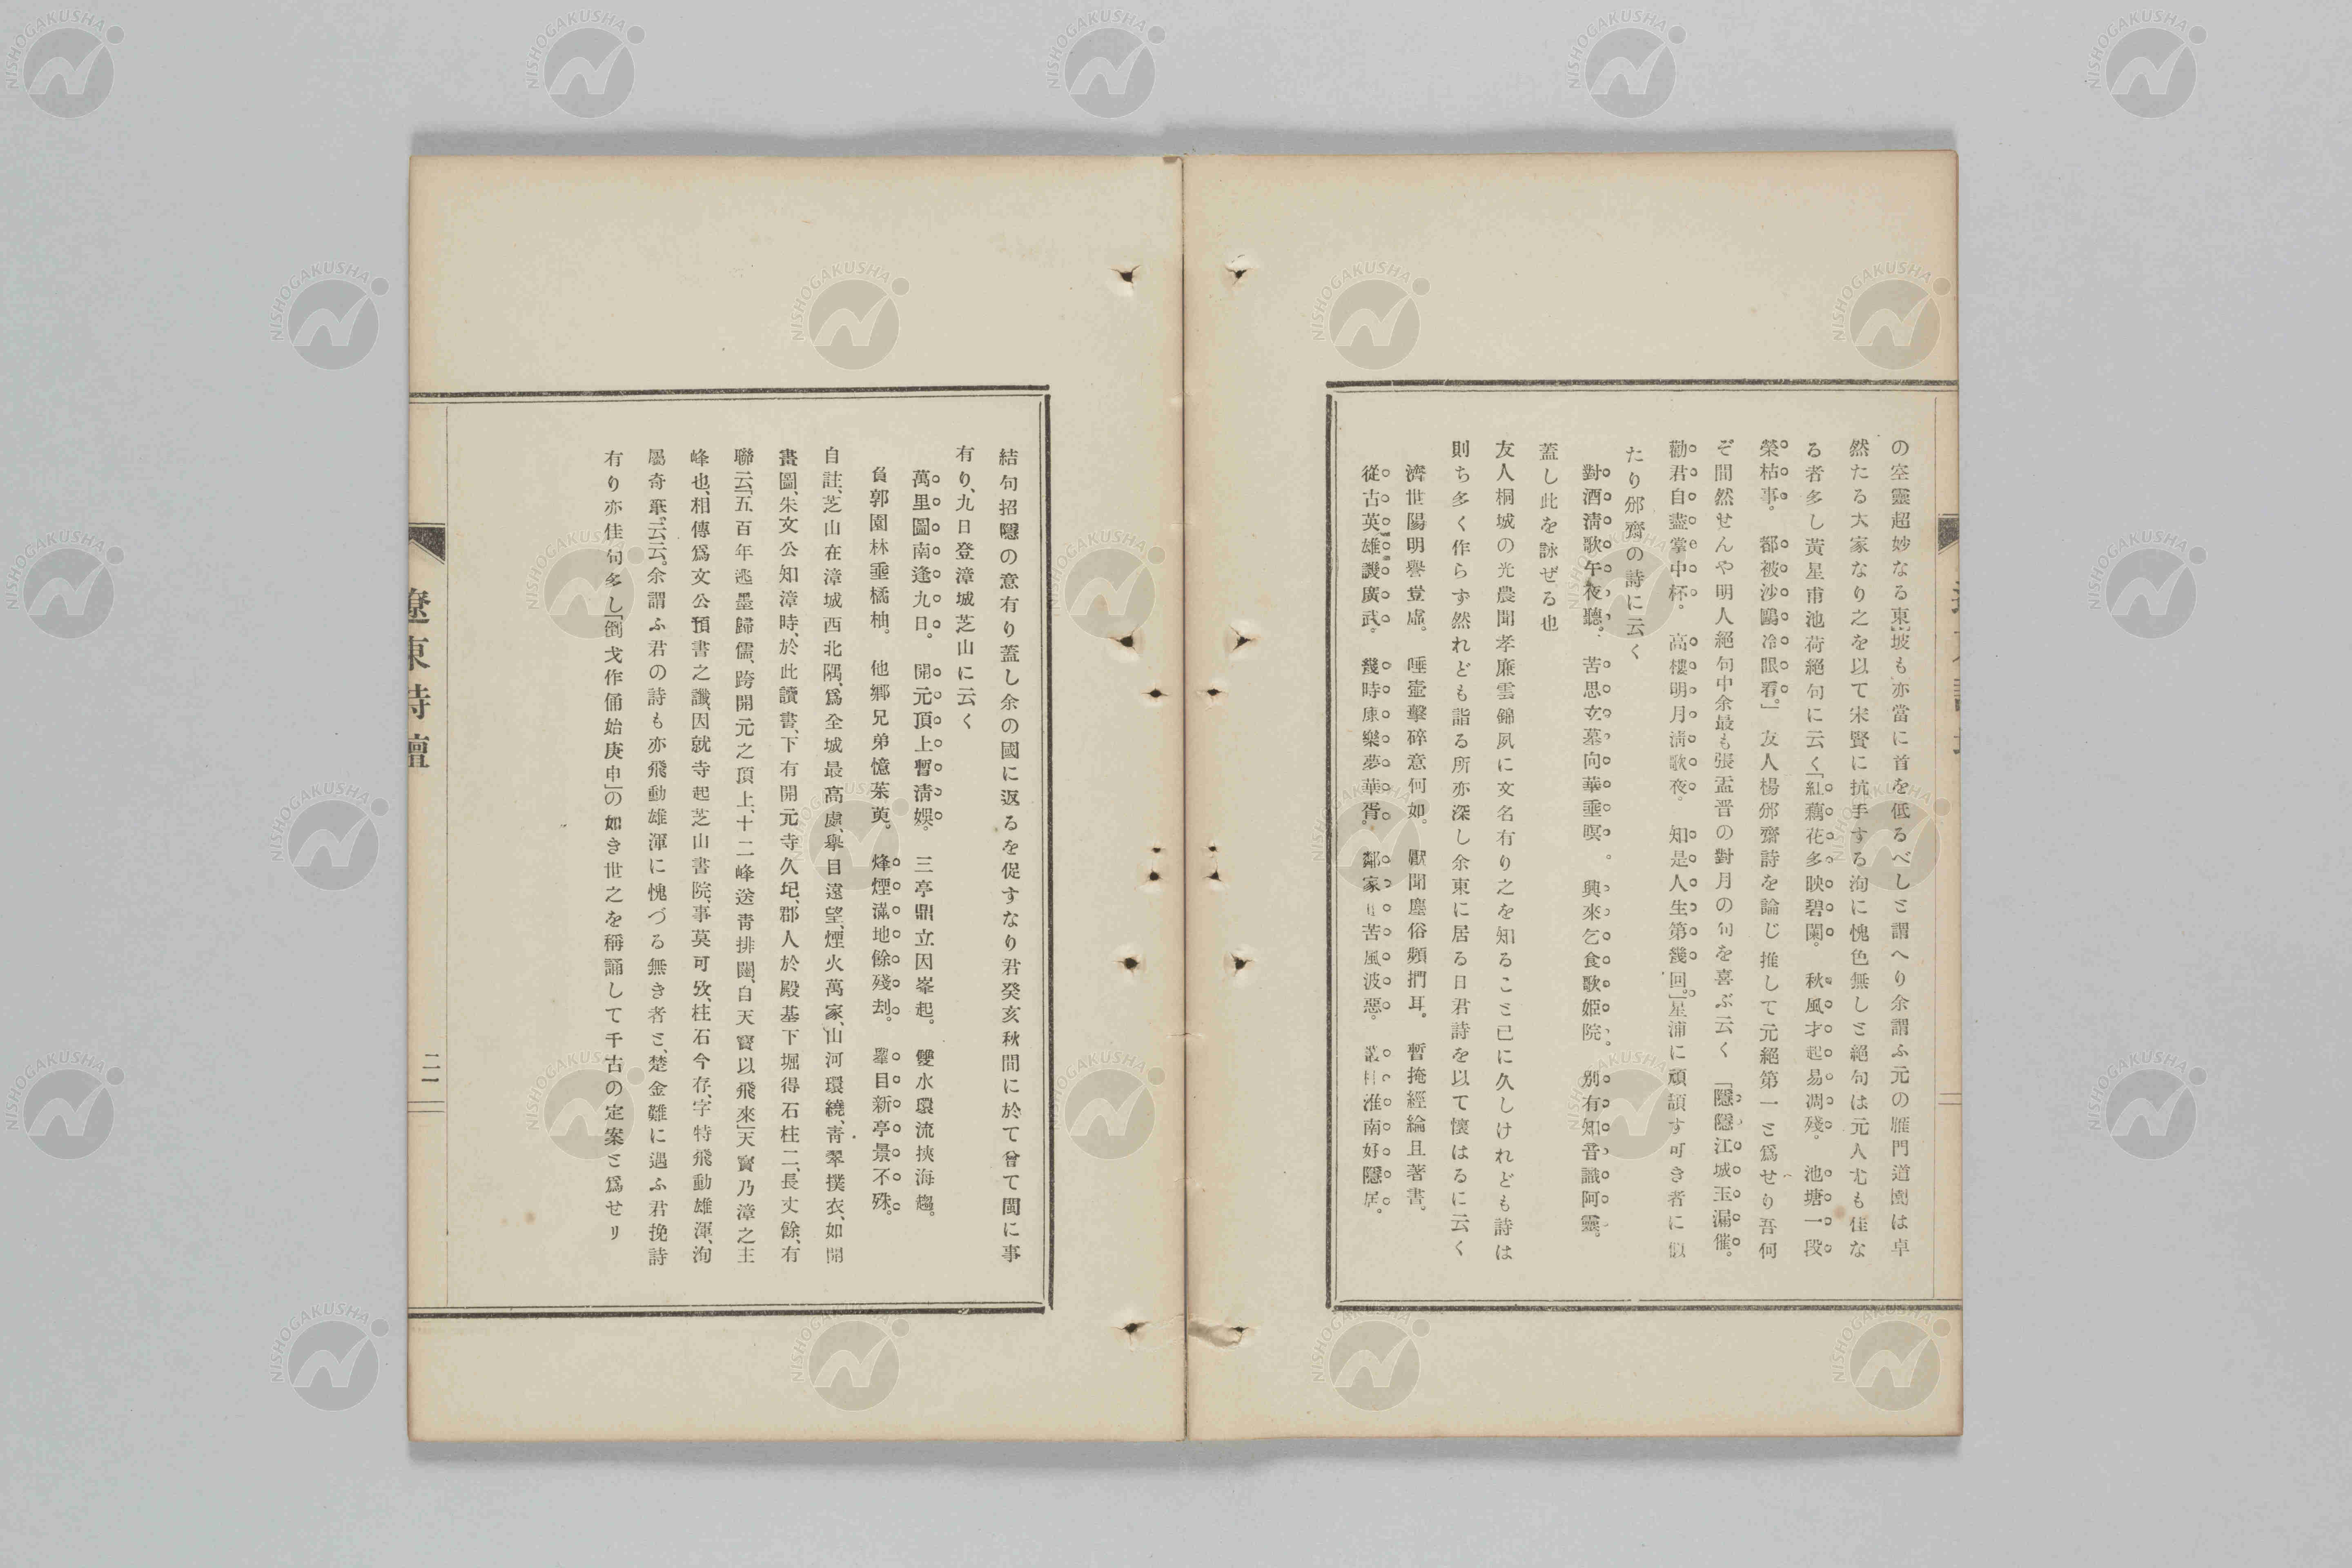 の空靈超妙なる東坡も亦當に首を低るべしと謂へり余謂ふ元の雁門道園は卓
然たる大家なり之を以て宋賢に抗手する洵に愧色無しと絕句は元人尤も佳な
る者多し黃星甫池荷絕句に云く「紅藕花多映碧闌。秋風才起易凋殘。池塘一段
榮枯事。都被沙鷗冷眼看。」友人楊邠齋詩を論じ推して元絕第一と爲せり吾何
ぞ間然せんや明人絕句中余最も張孟晋の對月の句を喜ぶ云く「隱隱江城玉漏催。
勸君自盡掌中杯。高樓明月淸歌夜。知是人生第幾回。」星浦に頑頡す可き者に似
たり邠齋の詩に云く
對酒淸歌午夜聽。苦思玄墓向華垂暝。興來乞食歌姬院。別有知音識阿靈。
蓋し此を詠ぜる也
友人桐城の光農聞孝廉雲錦夙に文名有り之を知ること已に久しけれども詩は
則ち多く作らず然れども詣る所亦深し余東に居る日君詩を以て懷はるに云く
濟世陽明譽豈虛。唾壺擊碎意何如。厭聞塵俗頻捫耳。暫掩經綸且著書。
從古英雄譏廣武。幾時康樂夢華胥。鄰家 苦風波惡。叢桂淮南好隱居。
結句招隱の意有り蓋し余の國に返るを促すなり君癸亥秋間に於て曾て閩に事
有り、九日登漳城芝山に云く
萬里圖南逢九日。開元頂上暫淸娛。三亭鼎立因峯起。雙水環流挾海趨。
負郭園林垂橘柚。他鄉兄弟憶茱萸。烽煙滿地餘殘刦。擧目新亭景不殊。
自註、芝山在漳城西北隅、爲全城最高處、擧目遠望、煙火萬家、山河環繞、靑翠撲衣、如開
畫圖、朱文公知漳時、於此讀書、下有開元寺久圮、郡人於殿基下堀得石柱二、長丈餘、有
聯云「五百年逃墨歸儒、跨開元之頂上、十二峰送靑排闥、自天寶以飛來」天寶乃漳之主
峰也、相傳爲文公預書之讖、因就寺起芝山書院、事莫可攷、柱石今存、字特飛動雄渾、洵
屬奇華云云。余謂ふ君の詩も亦飛動雄渾に愧づる無き者と、楚金難に遇ふ君挽詩
有り亦佳句多し「倒戈作俑始庚申」の如き世之を稱誦して千古の定案と爲せり
遼東詩壇
二一